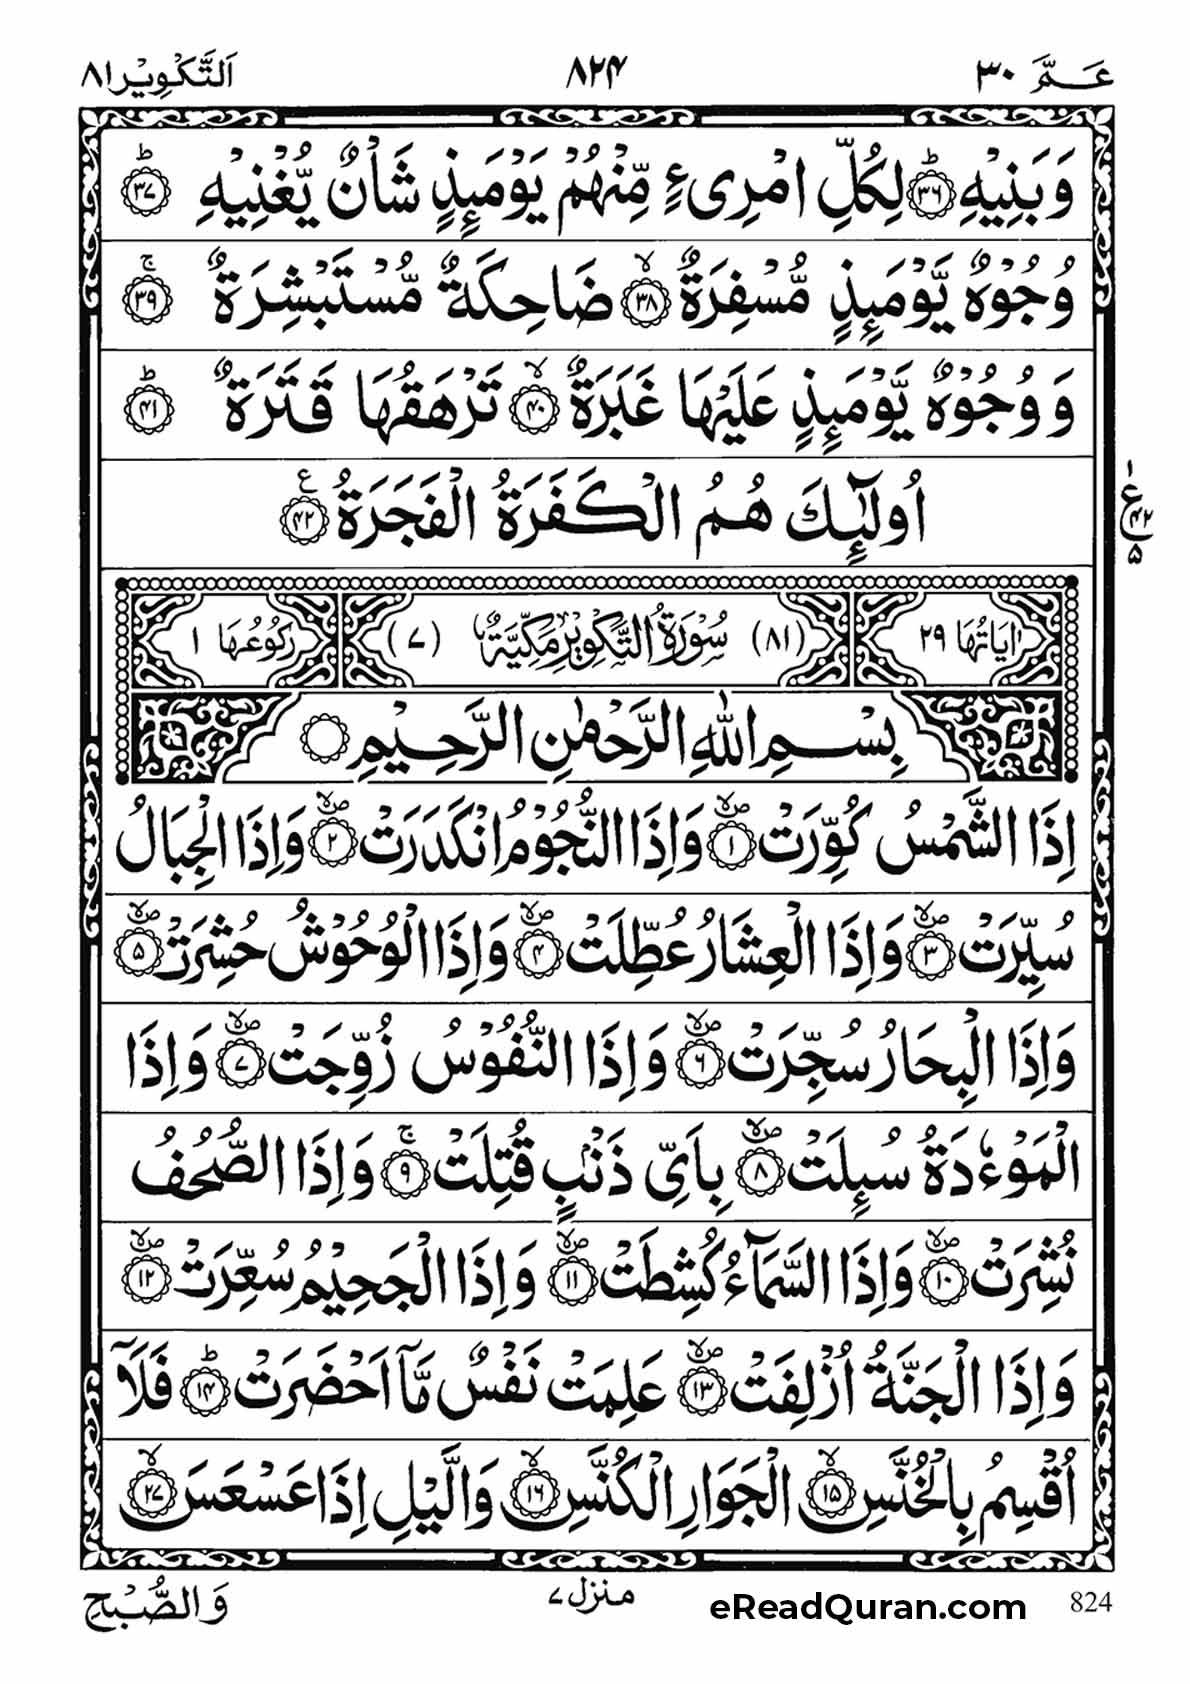 عَمَّ ٣٠ ٨٢۴ اَلتَّكْوِيْر ٨١
وَبَنِيْهِ ۭ ﴿٣٦﴾ لِكُلِّ امْرِیءٍ مِّنْهُمْ يَوْمَىِٕذٍ شَاْنٌ يُّغْنِيْهِ ۭ ﴿٣٧﴾
وُجُوْهٌ يَّوْمَىِٕذٍ مُّسْفِرَةٌ ۙ ﴿٣٨﴾ ضَاحِكَةٌ مُّسْتَبْشِرَةٌ ۚ ﴿٣٩﴾
وَوُجُوْهٌ يَّوْمَىِٕذٍ عَلَيْهَا غَبَرَةٌ ۙ ﴿۴٠﴾ تَرْهَقُهَا قَتَرَةٌ ۭ ﴿۴١﴾
اُولٰٓىِٕكَ هُمُ الْكَفَرَةُ الْفَجَرَةُ ع ﴿۴٢﴾
ع ١ ۴٢ ۵
اٰيَاتُهَا ٢٩ (٨١) سُوْرَةُ التَّكْوِيْرِ مَكِّيَّةٌ (٧) رَكُوْعُهَا ١
بِسْمِ اللّٰهِ الرَّحْمٰنِ الرَّحِيْمِ
اِذَا الشَّمْسُ كُوِّرَتْ ۪ۙ ﴿١﴾ وَاِذَا النُّجُوْمُ انْكَدَرَتْ ۪ۙ ﴿٢﴾ وَاِذَا الْجِبَالُ
سُيِّرَتْ ۪ۙ ﴿٣﴾ وَاِذَا الْعِشَارُ عُطِّلَتْ ۪ۙ ﴿۴﴾ وَاِذَا الْوُحُوْشُ حُشِرَتْ ۪ۙ ﴿۵﴾
وَاِذَا الْبِحَارُ سُجِّرَتْ ۪ۙ ﴿٦﴾ وَاِذَا النُّفُوْسُ زُوِّجَتْ ۪ۙ ﴿٧﴾ وَاِذَا
الْمَوْءٗدَةُ سُىِٕلَتْ ۪ۙ ﴿٨﴾ بِاَىِّ ذَنْۢبٍ قُتِلَتْ ۚ ﴿٩﴾ وَاِذَا الصُّحُفُ
نُشِرَتْ ۪ۙ ﴿١٠﴾ وَاِذَا السَّمَآءُ كُشِطَتْ ۪ۙ ﴿١١﴾ وَاِذَا الْجَحِيْمُ سُعِّرَتْ ۪ۙ ﴿١٢﴾
وَاِذَا الْجَنَّةُ اُزْلِفَتْ ۪ۙ ﴿١٣﴾ عَلِمَتْ نَفْسٌ مَّاۤ اَحْضَرَتْ ۭ ﴿١۴﴾ فَلَاۤ
اُقْسِمُ بِالْخُنَّسِ ۙ ﴿١۵﴾ الْجَوَارِ الْكُنَّسِ ۙ ﴿١٦﴾ وَالَّيْلِ اِذَا عَسْعَسَ ۙ ﴿٢٧﴾
منزل ٧
وَالصُّبْحِ
eReadQuran.com
824